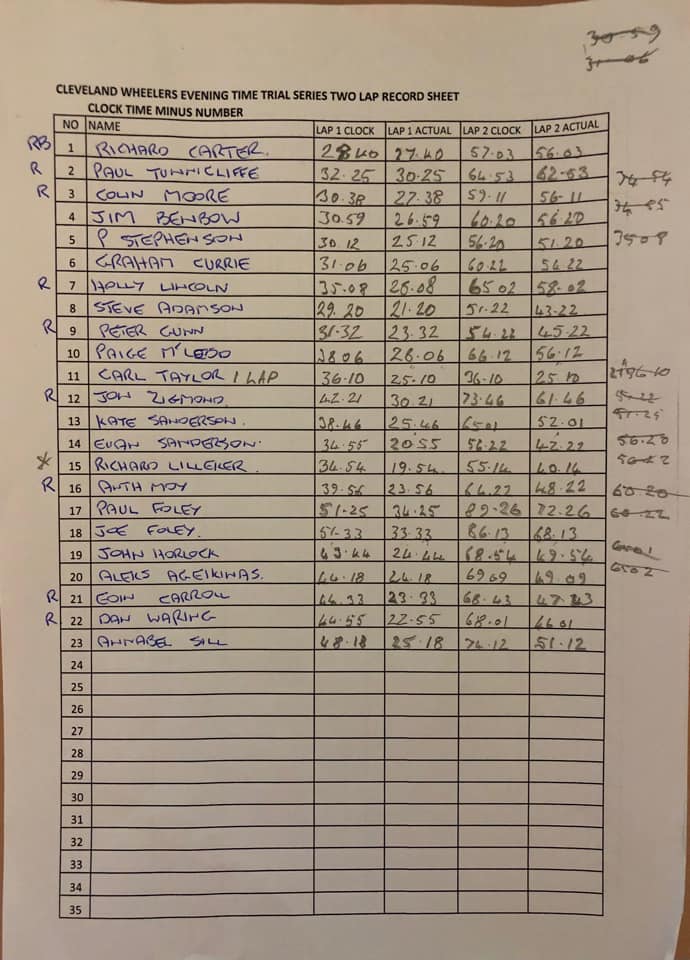 30-59
31-06
CLEVELAND WHEELERS EVENING TIME TRIAL SERIES TWO LAP RECORD SHEET
CLOCK TIME MINUS NUMBER
NO NAME LAP 1 CLOCK LAP 1 ACTUAL LAP 2 CLOCK LAP 2 ACTUAL
RB 1 RICHARD CARTER. 28 40 27.40 57.03 56.03
R 2 PAUL TUNNICLIFFE 32.25 30.25 64.53 62-53
34-54
R 3 COLIN MOORE 30.38 27.38 59.11 56-11
4 JIM BENBOW 30.59 26.59 60.20 56.20
5 P STEPHENSON 30.12 25.12 56.20 51.20 3508
6 GRAHAM CURRIE 31.06 25.06 60.22 54.22
R 7 HOLLY LINCOLN 35.08 28.08 65 02 58-02
8 STEVE ADAMSON 29.20 21.20 51.22 43-22
R 9 PETER GUNN 31-32 23.32 54.22 45.22
10 PAIGE 38 06 28.06 66.12 56.12
11 CARL TAYLOR 1 LAP 36-10 25.10 36-10 25.10
R 12 JON ZIGMOND. 42.21 30.21 73.46 61.46
13 KATE SANDERSON. 38.46 25.46 6501 52.01
14 EUAN SANDERSON. 34.55 20 55 56.22 42.22 56.20
* 15 RICHARD LILLEKER. 34.54 19.54. 55.14 40.14 56-22
R 16 ANTH MOY 39.56 23.56 64.22 48.22 60 20
17 PAUL FOLEY 51-25 34.25 89-26 72.26 60-22
18 JOE FOLEY. 51-33 33.33 86.13 68.13
19 JOHN HORLOCK 43.44 24.44 68.54 49.54 6501
20 ALEKS AGEIKINAS. 44.18 24.18 69 09 49.09 6502
R 21 EOIN CARROLL 44.33 23.33 68.43 47.43
R 22 DAN WARING 44.55 22.55 68.01 46 01
23 ANNABEL SILL 48.18 25.18 74.12 51.12
24
25
26
27
28
29
30
31
32
33
34
35